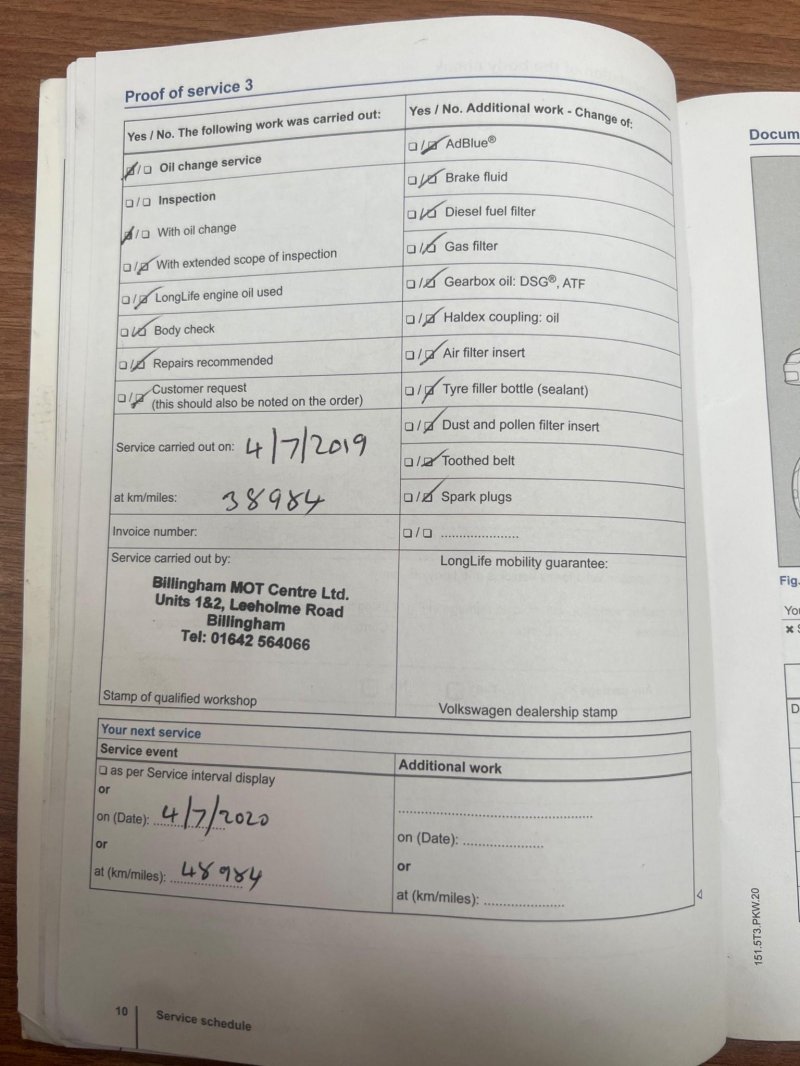 Proof of service 3
Yes / No. The following work was carried out:
☑/☐ Oil change service
☐/☐ Inspection
☑/☐ With oil change
☐/☑ With extended scope of inspection
☐/☑ LongLife engine oil used
☐/☑ Body check
☐/☑ Repairs recommended
☐/☑ Customer request
(this should also be noted on the order)
Service carried out on: 4/7/2019
at km/miles: 38984
Invoice number:
Service carried out by:
Billingham MOT Centre Ltd.
Units 1&2, Leeholme Road
Billingham
Tel: 01642 564066
Stamp of qualified workshop
Yes / No. Additional work - Change of:
☐/☑ AdBlue®
☐/☑ Brake fluid
☐/☑ Diesel fuel filter
☐/☑ Gas filter
☐/☑ Gearbox oil: DSG®, ATF
☐/☑ Haldex coupling: oil
☐/☑ Air filter insert
☐/☑ Tyre filler bottle (sealant)
☐/☑ Dust and pollen filter insert
☐/☑ Toothed belt
☐/☑ Spark plugs
☐/☐ ......................
LongLife mobility guarantee:
Volkswagen dealership stamp
Your next service
Service event
☐ as per Service interval display
or
on (Date): 4/7/2020
or
at (km/miles): 48984
Additional work
on (Date): ......................
or
at (km/miles): ......................
10
Service schedule
Docum
Fig.
You
151.5T3.PKW.20